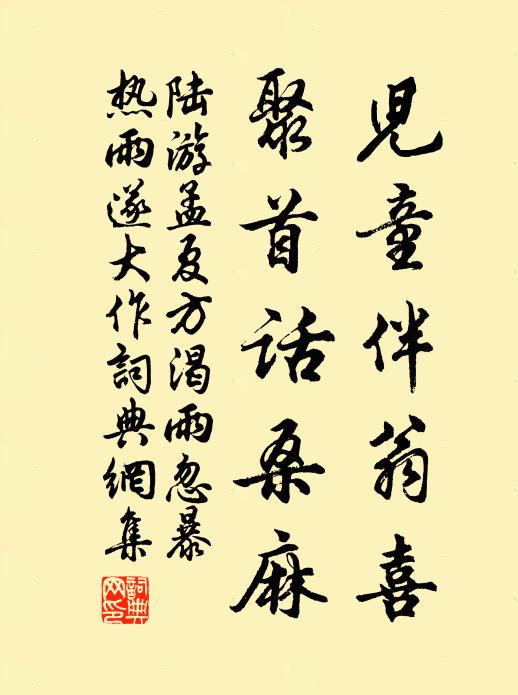 児童伴翁喜
聚首话桑麻
陆游孟夏方渴雨忽暴
热雨遂大作詞典網集
詞典